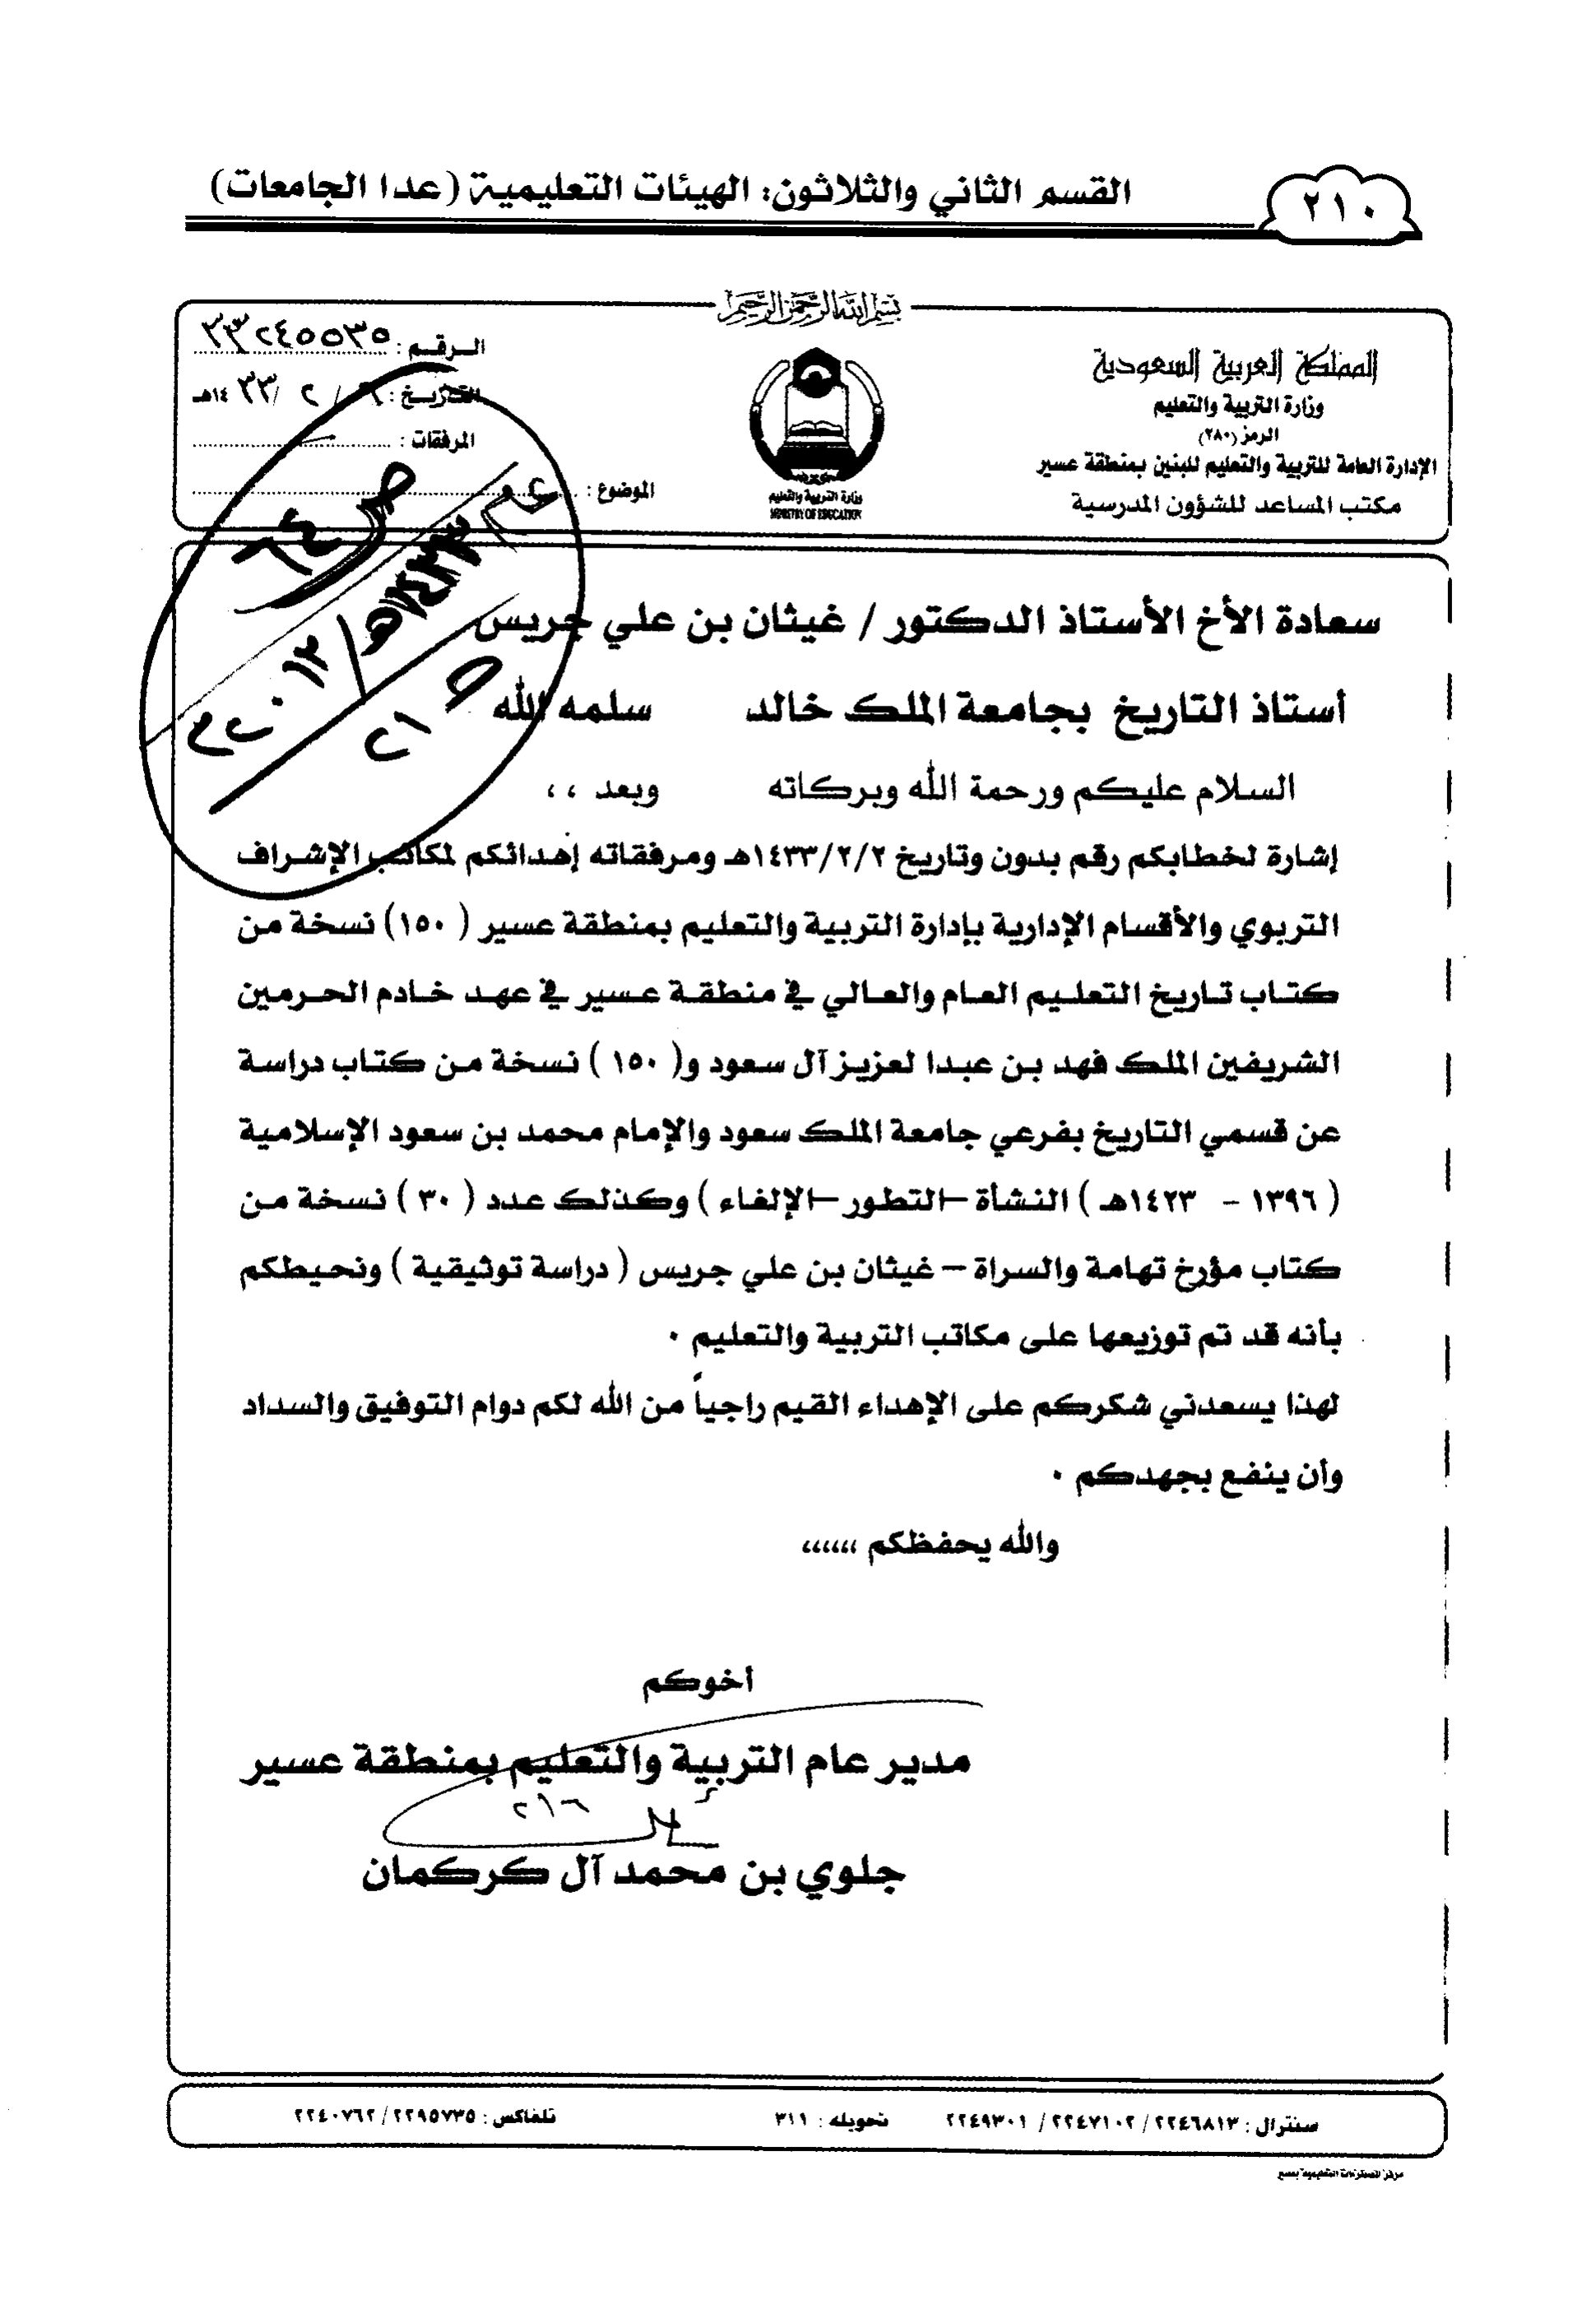 ٢١٠
القسم الثاني والثلاثون: الهيئات التعليمية (عدا الجامعات)
بسم الله الرحمن الرحيم
المملكة العربية السعودية
وزارة التربية والتعليم
الرمز (٢٨٠)
الإدارة العامة للتربية والتعليم للبنين بمنطقة عسير
مكتب المساعد للشؤون المدرسية
وزارة التربية والتعليم
MINISTRY OF EDUCATION
الرقم : ٣٣٢٤٥٥٣٥
التاريخ : ٦ / ٢ / ١٤٣٣هـ
المرفقات :
الموضوع :
١٤٣٣هـ / ٢٠١٢م
سعادة الأخ الأستاذ الدكتور / غيثان بن علي جريس
أستاذ التاريخ بجامعة الملك خالد سلمه الله
السلام عليكم ورحمة الله وبركاته وبعد ،،
إشارة لخطابكم رقم بدون وتاريخ ١٤٣٣/٢/٢هـ ومرفقاته إهدائكم لمكاتب الإشراف
التربوي والأقسام الإدارية بإدارة التربية والتعليم بمنطقة عسير ( ١٥٠) نسخة من
كتاب تاريخ التعليم العام والعالي في منطقة عسير في عهد خادم الحرمين
الشريفين الملك فهد بن عبدا لعزيز آل سعود و( ١٥٠ ) نسخة من كتاب دراسة
عن قسمي التاريخ بفرعي جامعة الملك سعود والإمام محمد بن سعود الإسلامية
( ١٣٩٦ - ١٤٢٣هـ ) النشأة –التطور –الإلغاء ) وكذلك عدد ( ٣٠ ) نسخة من
كتاب مؤرخ تهامة والسراة – غيثان بن علي جريس ( دراسة توثيقية ) ونحيطكم
بأنه قد تم توزيعها على مكاتب التربية والتعليم ٠
لهذا يسعدني شكركم على الإهداء القيم راجياً من الله لكم دوام التوفيق والسداد
وأن ينفع بجهدكم ٠
والله يحفظكم ،،،،،،
أخوكم
مدير عام التربية والتعليم بمنطقة عسير
جلوي بن محمد آل كركمان
سنترال : ٢٢٤٦٨١٣ / ٢٢٤٧١٠٢ / ٢٢٤٩٣٠١ تحويله : ٣١١ تلفاكس : ٢٢٩٥٧٣٥ / ٢٢٤٠٧٦٢